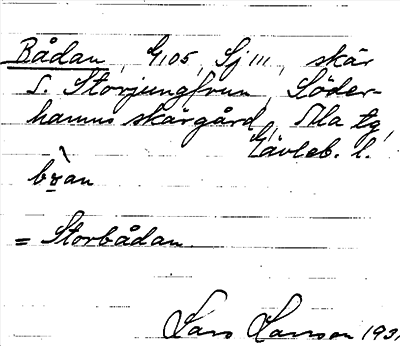 Bådan, G,05, Sj III, skär
S. Storjungfrun, Söder-
hamns skärgård, Ala tg,
Gävleb. l.
= Storbådan.
Lars Hanson 193